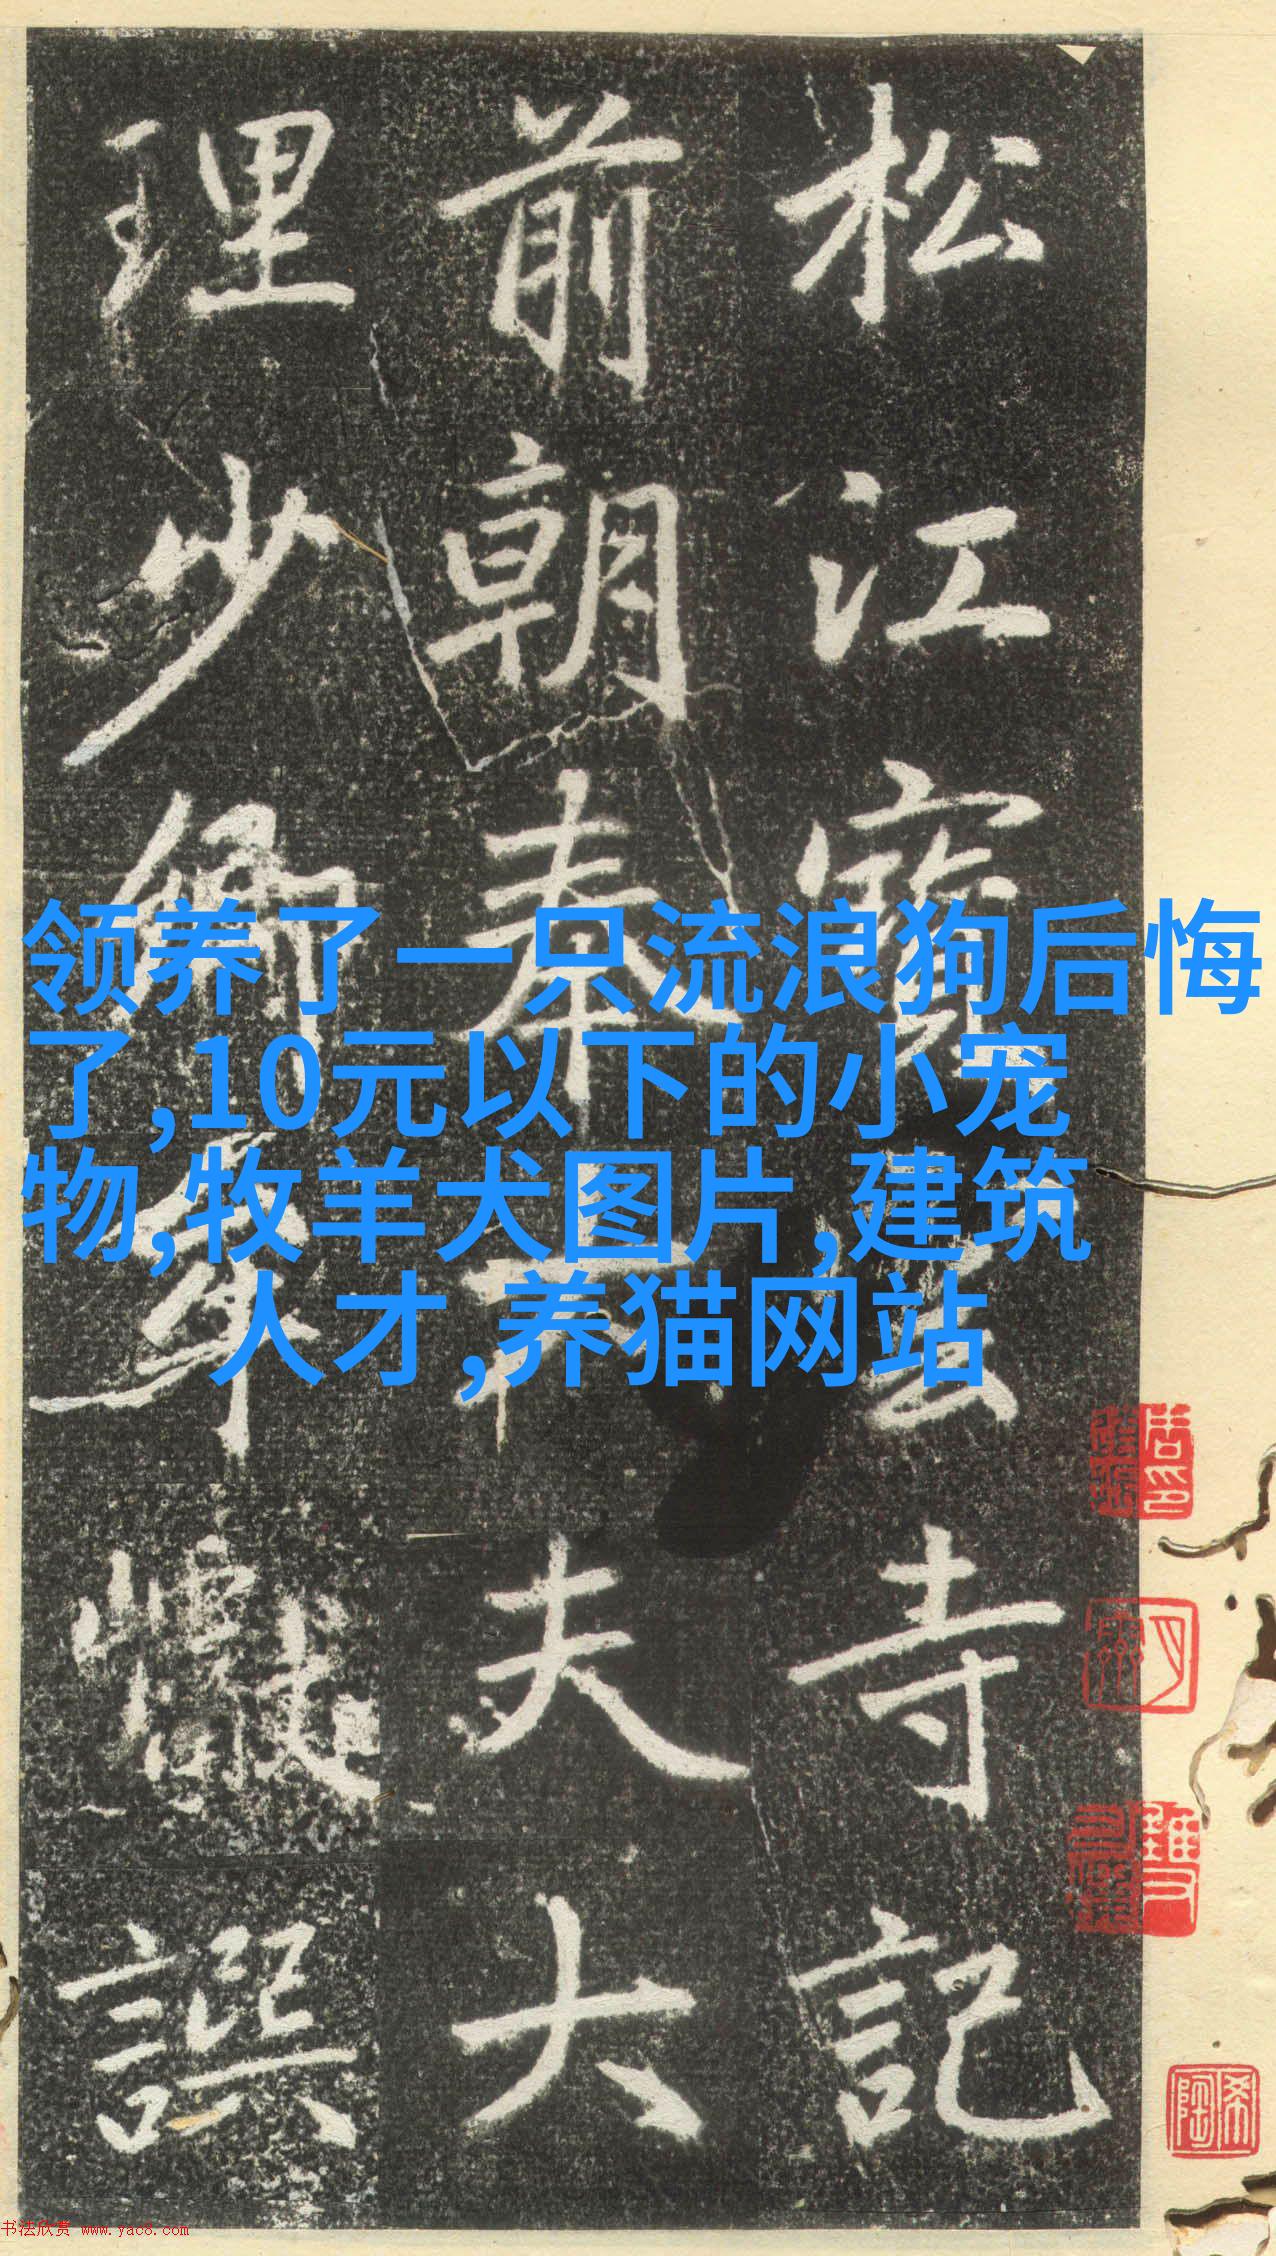 松江寶雲寺記
前朝奉大夫大
理少卿牟巘譔
领养了一只流浪狗后悔
了,10元以下的小宠
物,牧羊犬图片,建筑
人才,养猫网站
希陶
书法欣赏 www.yac8.com